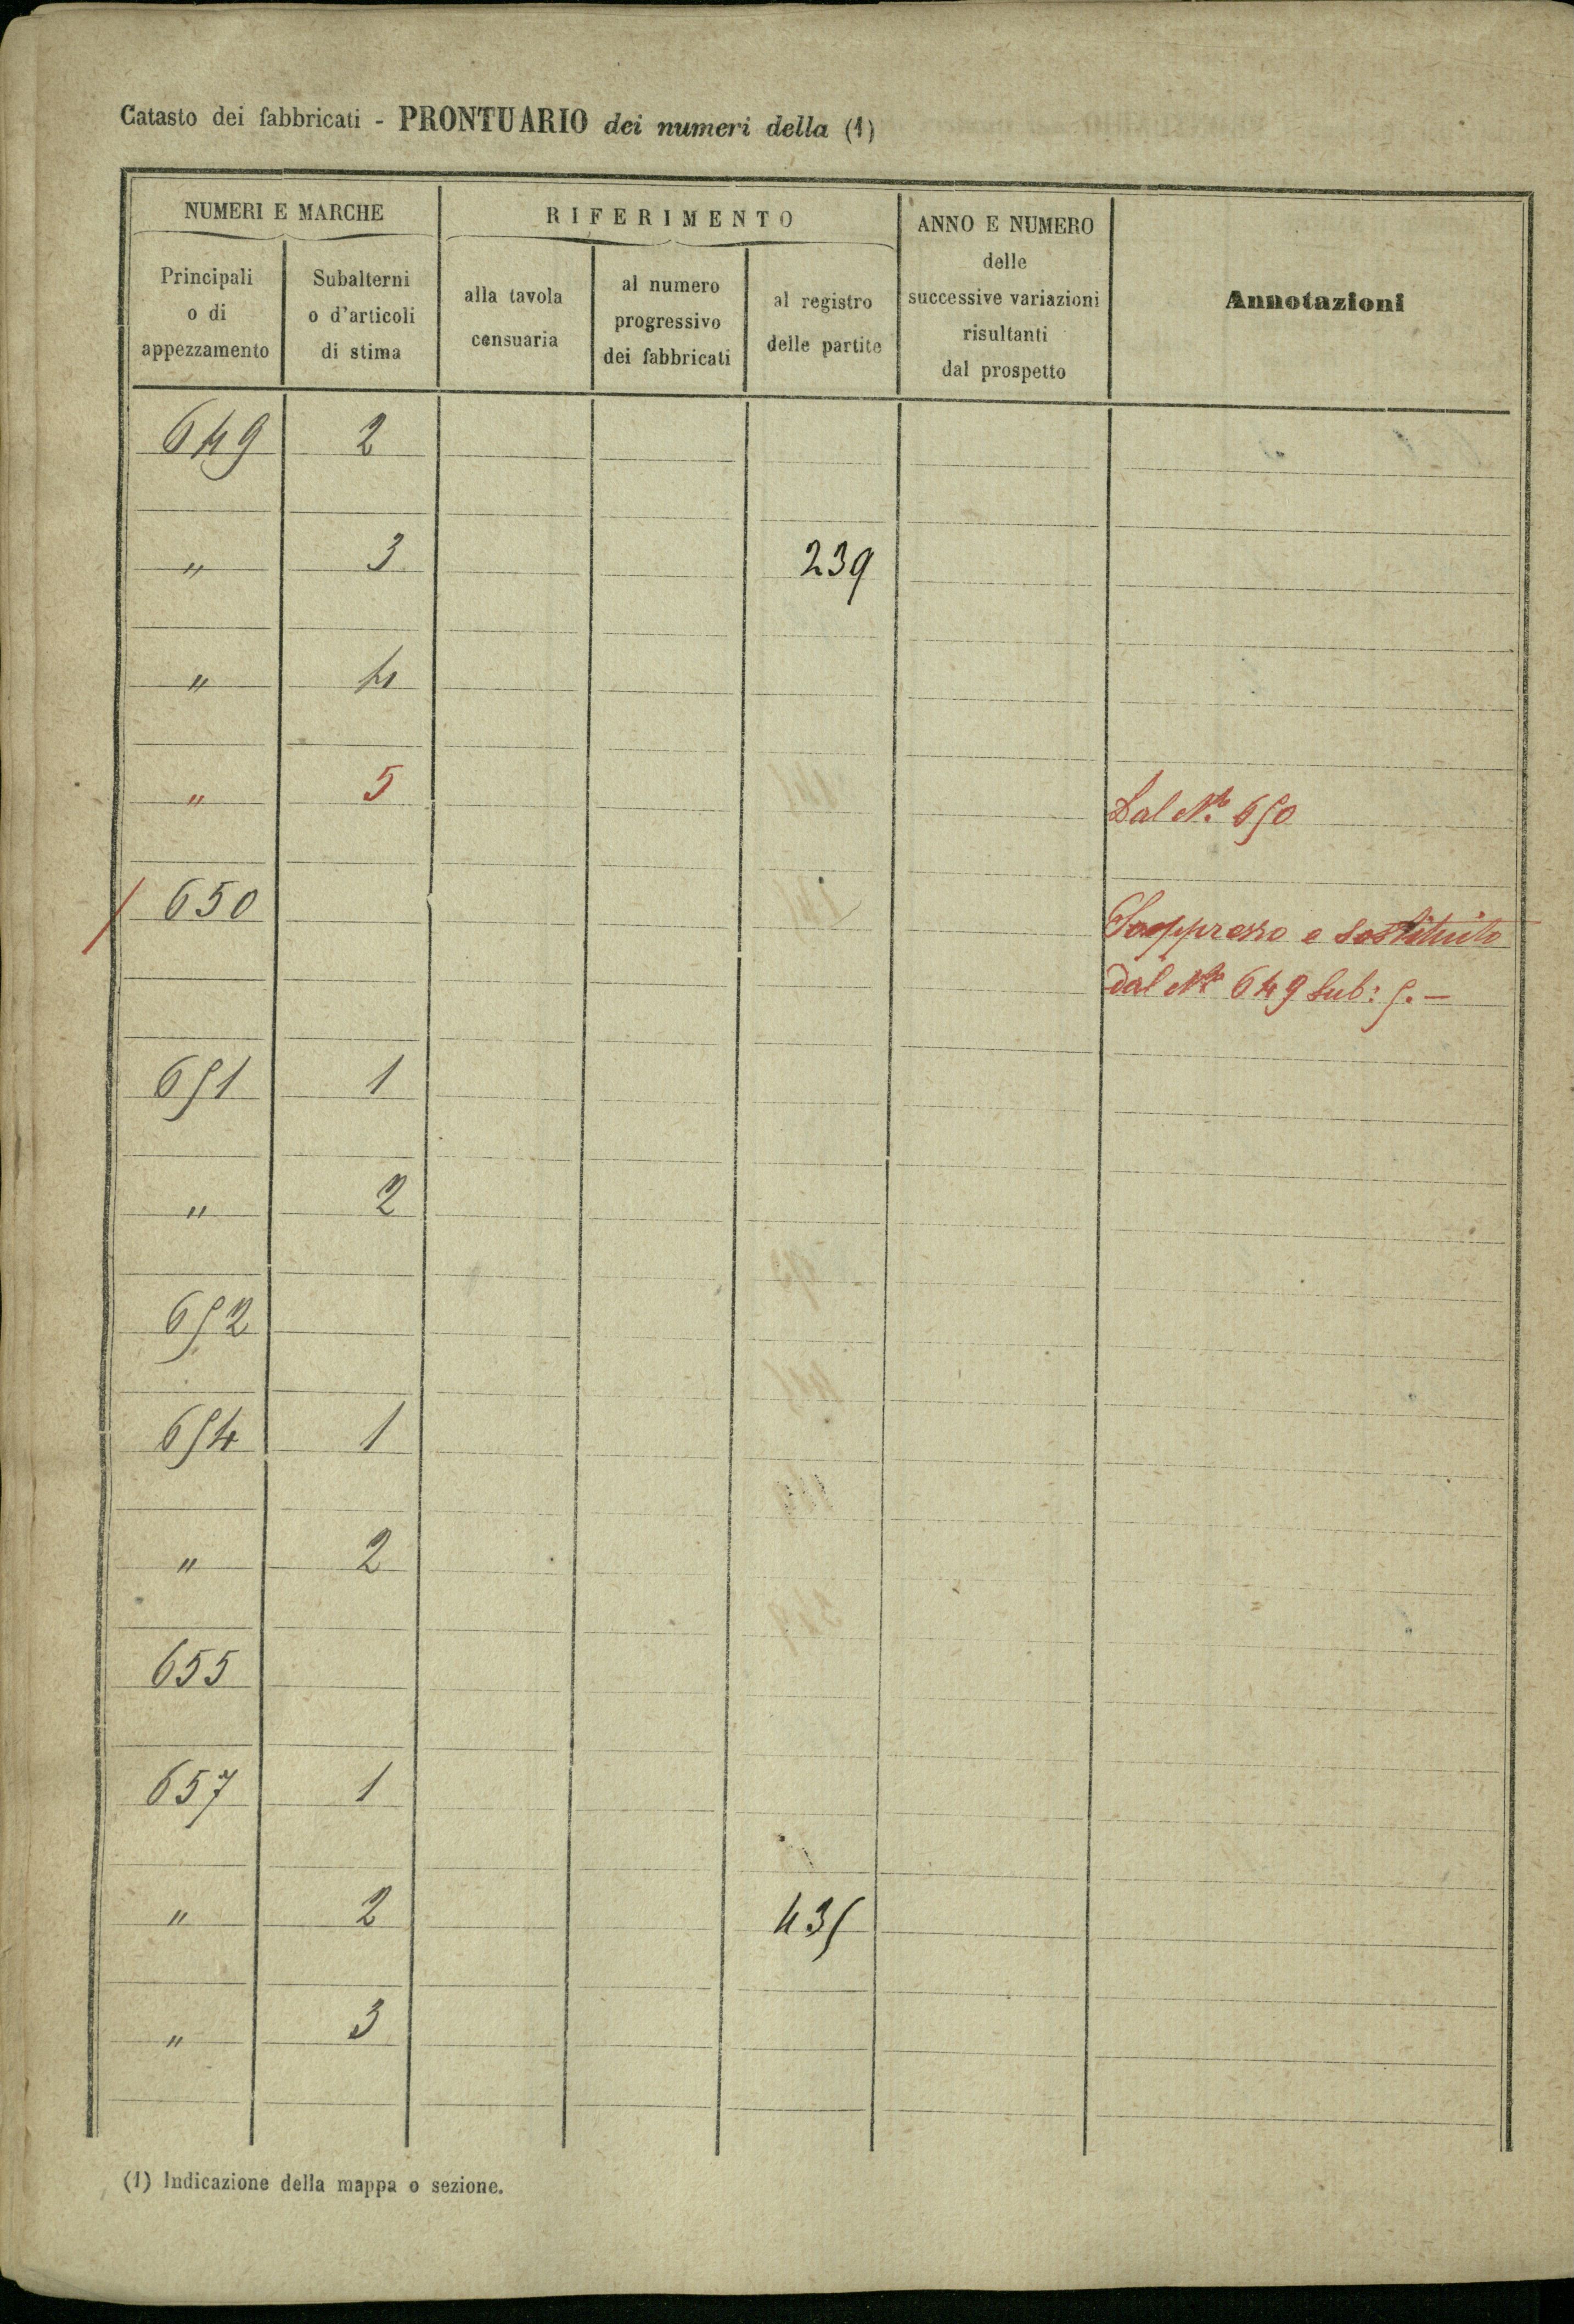 Catasto dei fabbricati - PRONTUARIO dei numeri della (1)
NUMERI E MARCHE
RIFERIMENTO
ANNO E NUMERO
delle
successive variazioni
risultanti
dal prospetto
Annotazioni
Principali
o di
appezzamento
Subalterni
o d'articoli
di stima
alla tavola
censuaria
al numero
progressivo
dei fabbricati
al registro
delle partite
649 2
" 3 239
" 4
" 5 Dal N.º 650
/ 650 Soppresso e sostituito
dal Nº 649 Sub: 5. —
651 1
" 2
652
654 1
" 2
655
657 1
" 2 435
" 3
(1) Indicazione della mappa o sezione.